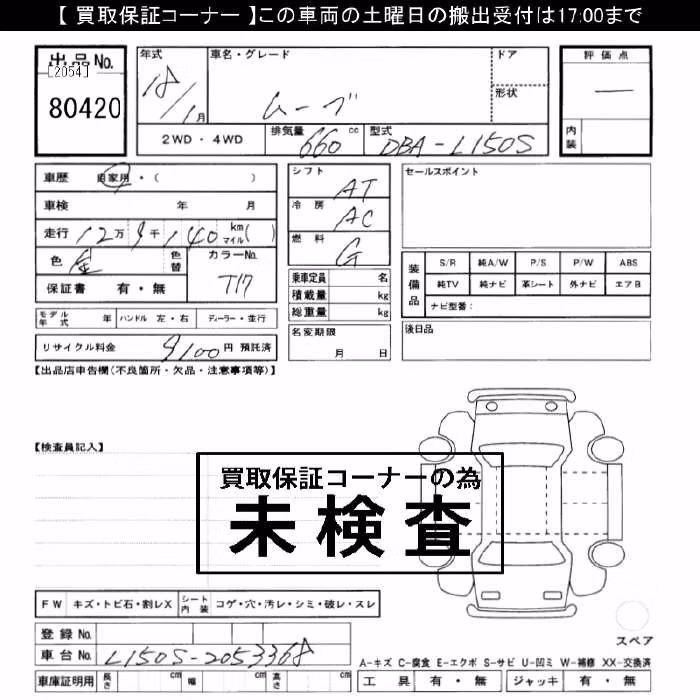 【 買取保証コーナー 】この車両の土曜日の搬出受付は17:00まで
出品No.
[2054]
80420
年式
18/1月
車名・グレード
ムーブ
ドア
形状
評価点
—
内装
2WD・4WD
排気量 660 cc
型式 DBA-L150S
車歴 自家用・( )
車検 年 月
走行 12万9千140 km マイル( )
色 金 色替
カラーNo. T17
保証書 有・無
シフト AT
冷房 AC
燃料 G
乗車定員 名
積載量 kg
総重量 kg
セールスポイント
装備品
S/R 純A/W P/S P/W ABS
純TV 純ナビ 革シート 外ナビ エアB
ナビ型番:
モデル年式 年 ハンドル 左・右 ディーラー・並行
名変期限 月 日
後日品
リサイクル料金 9100円 預託済
【出品店申告欄(不良箇所・欠品・注意事項等)】
【検査員記入】
買取保証コーナーの為
未検査
FW キズ・トビ石・割レX シート内装 コゲ・穴・汚レ・シミ・破レ・スレ
スペア
登録No.
車台No. L150S-2053368
A-キズ C-腐食 E-エクボ S-サビ U-凹ミ W-補修 XX-交換済
車庫証明用 長さ cm 幅 cm 高さ cm
工具 有・無 ジャッキ 有・無